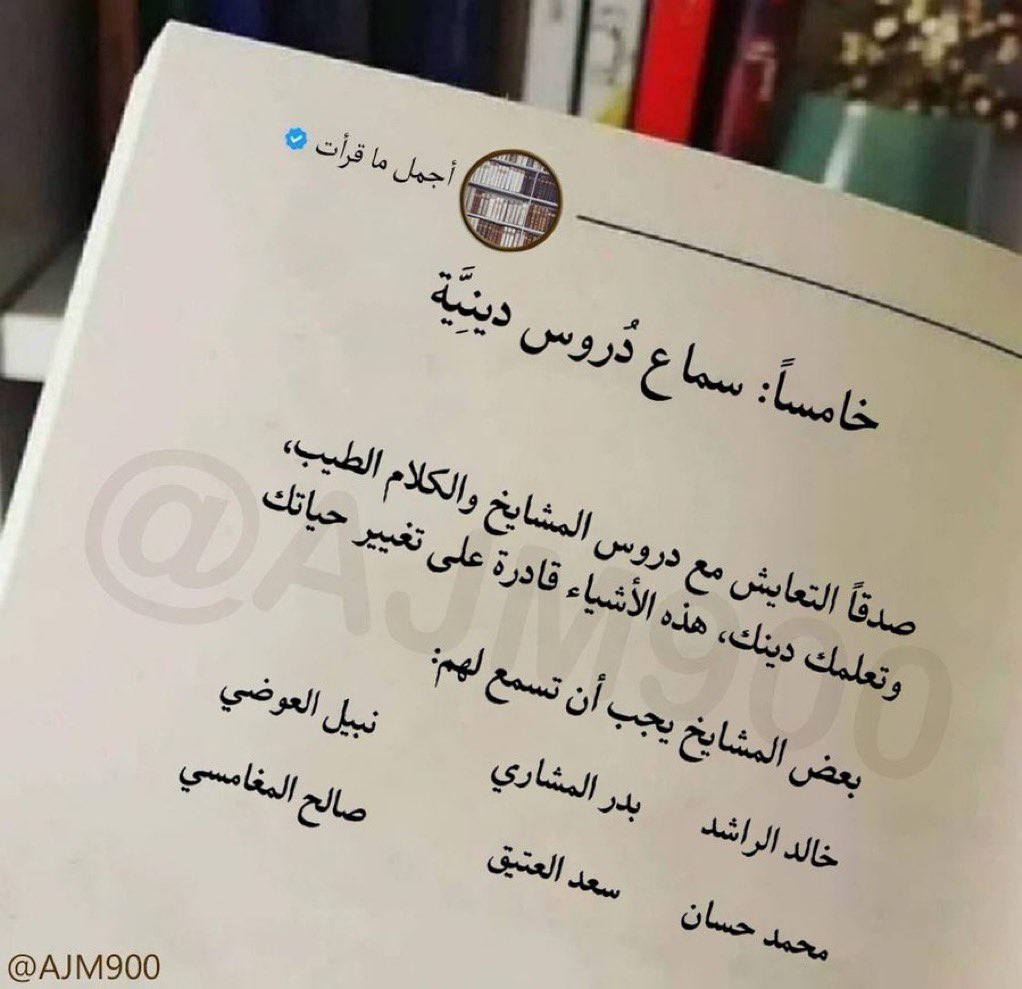 أجمل ما قرأت
خامساً: سماع دُروس دينِيَّة
صدقاً التعايش مع دروس المشايخ والكلام الطيب،
وتعلمك دينك، هذه الأشياء قادرة على تغيير حياتك
بعض المشايخ يجب أن تسمع لهم:
خالد الراشد بدر المشاري نبيل العوضي
محمد حسان سعد العتيق صالح المغامسي
@AJM900
@AJM900